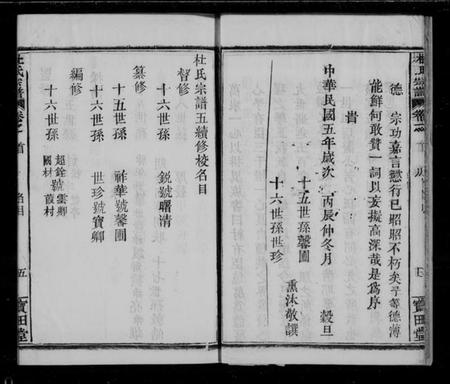 德 宗功嘉言懿行已昭昭不朽矣予等德薄
能鮮何敢贊一詞以妄擬高深哉是為序
峕
中華民國五年歲次 丙辰仲冬月 穀旦
十五世孫馨圃
十六世孫世珍
熏沐敬譔
寶田堂
杜氏宗譜五續修校名目
督修
十六世孫 銳號曙清
纂修
十五世孫 祚華號馨圃
十六世孫 世珍號寶卿
編修
十六世孫
超銓號雲卿
國材 葭村
杜氏宗譜 卷之首 名目 五 寶田堂